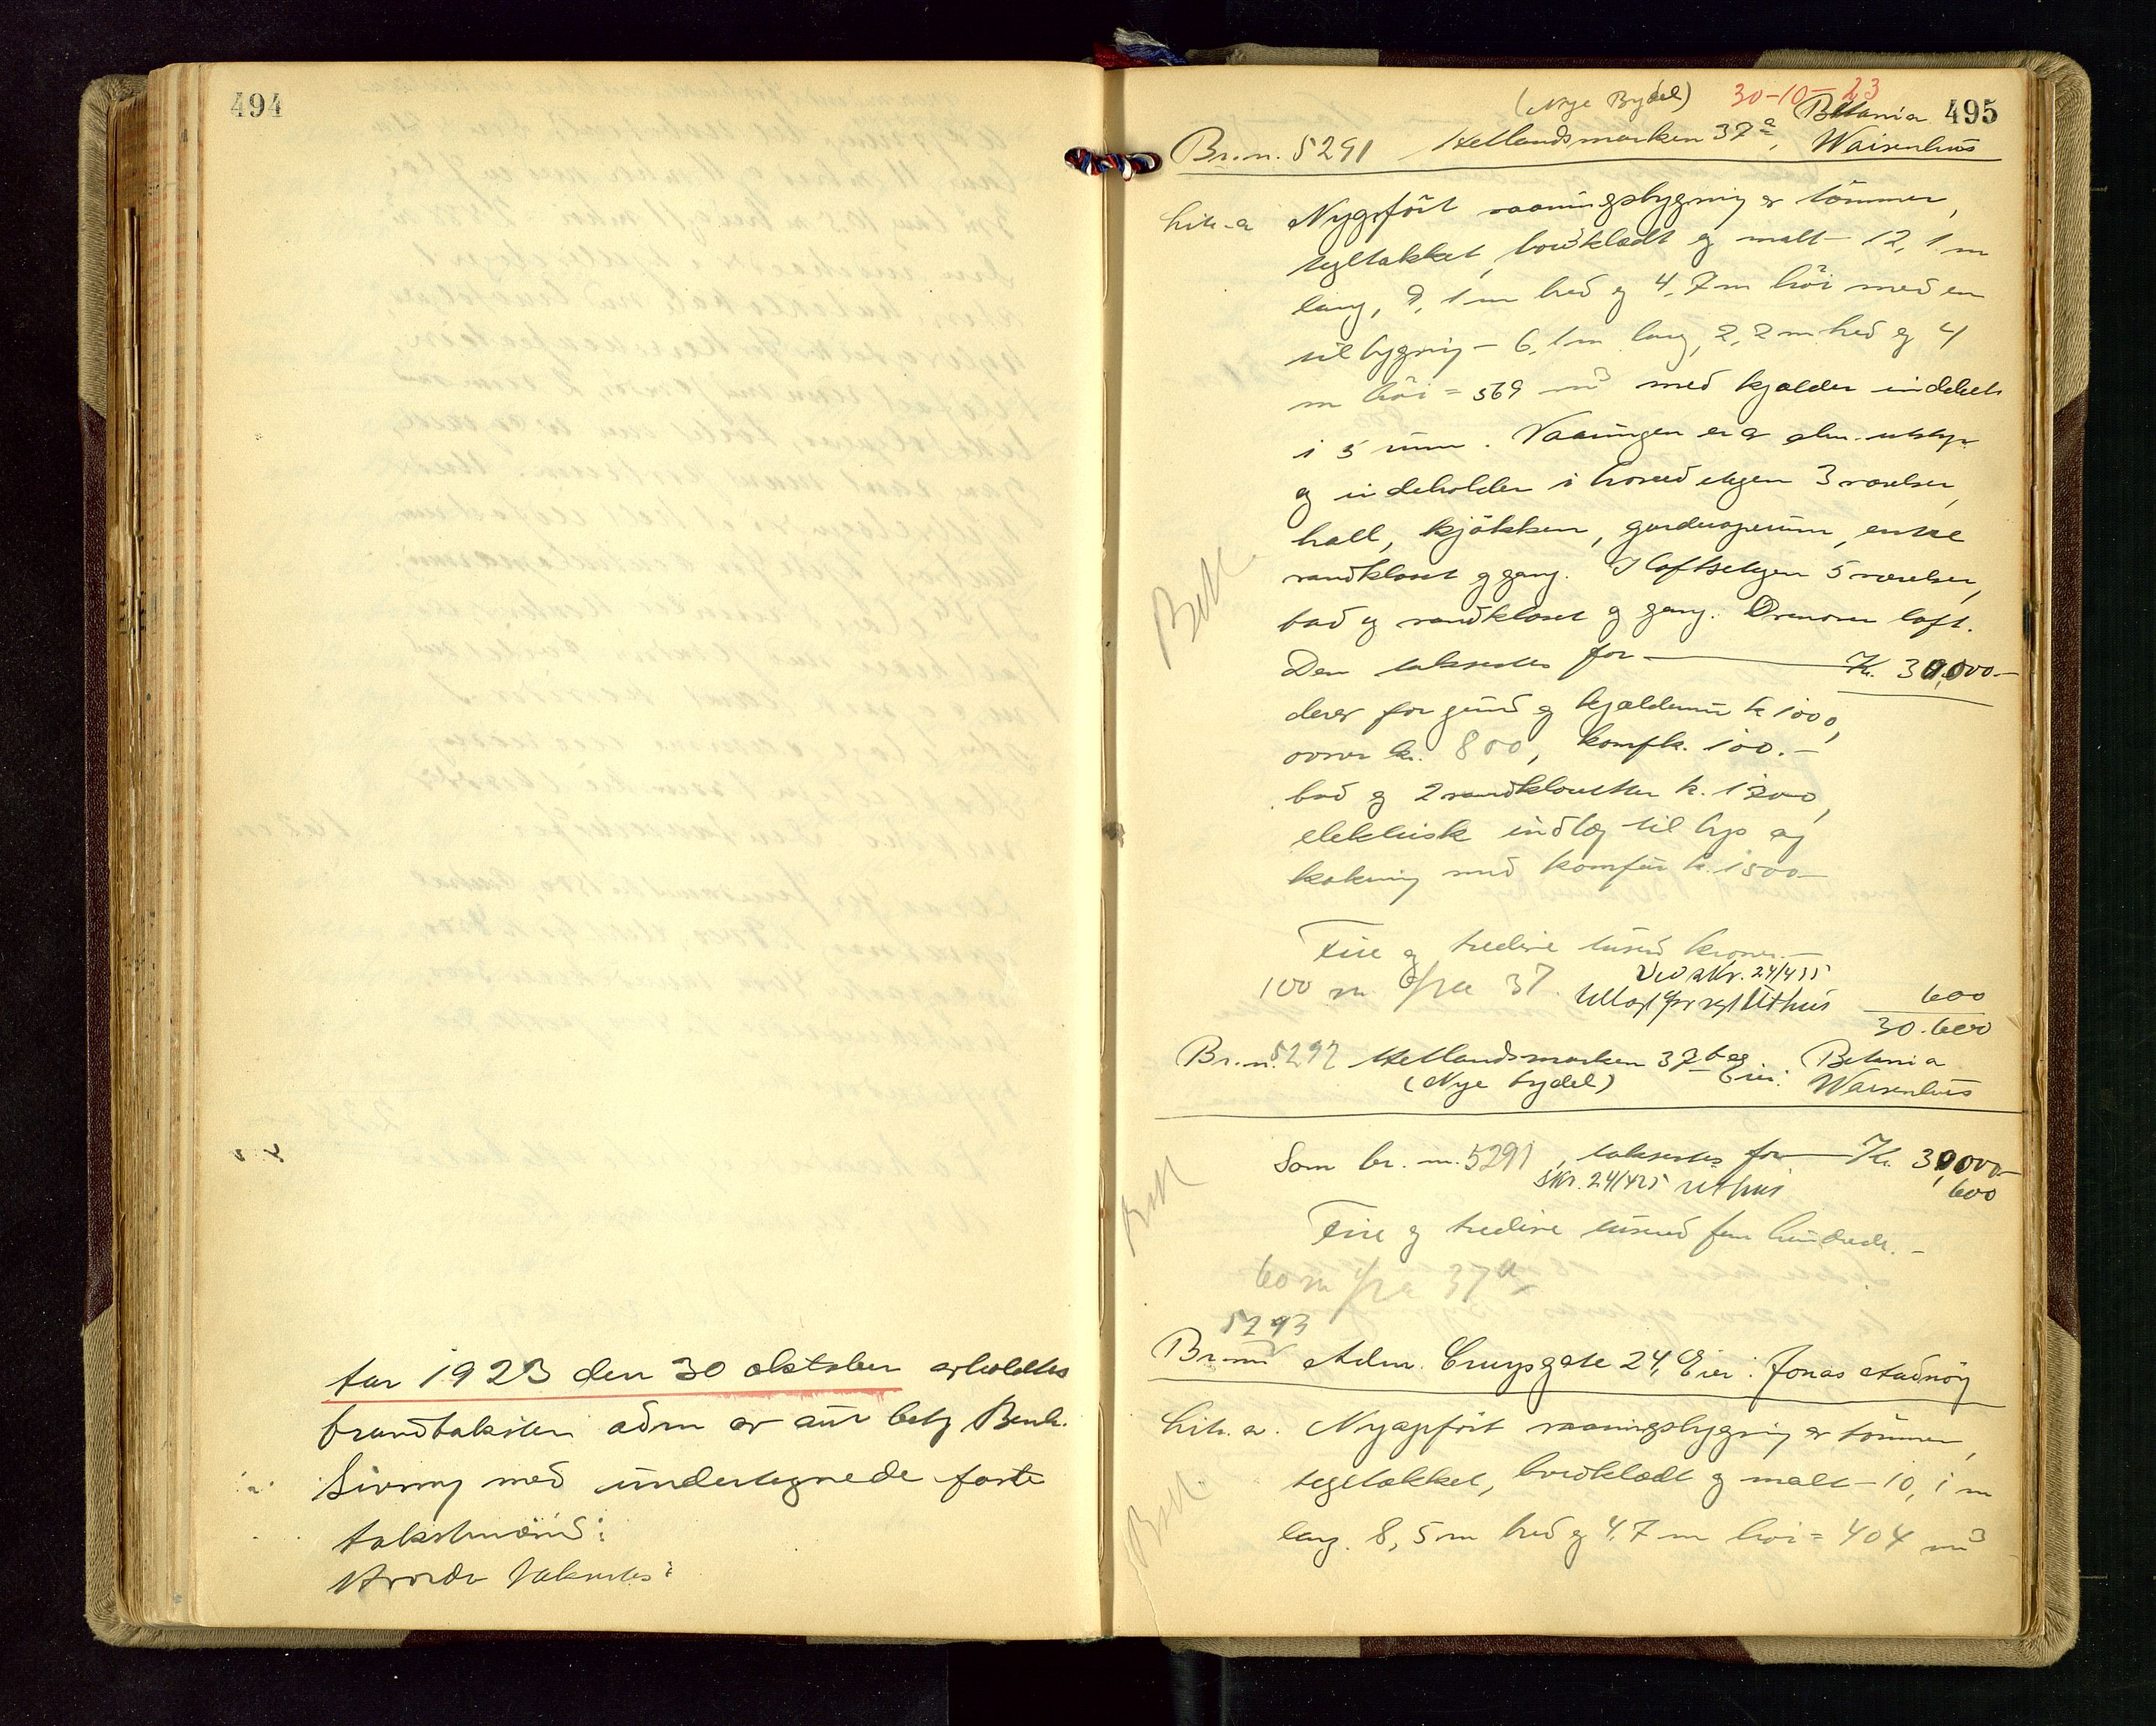 494
Aar 1923 den 30 oktober avholdtes
brandtakster adm av aut betj Benh.
Sivong med undertegnede faste
takstmænd:
Hvorda takertes:
(Nye Bydel) 30-10-23
Betania 495
Br.n. 5291 Hetlandsmarken 37a, Waisenhus
Litr. a Nyopført vaaningsbygning av tømmer,
tegltakket, bordklædt og malt - 12,1 m
lang, 9,1 m bred og 4,7 m høi med en
tilbygning - 6,1 m lang, 2,2 m bred og 4
m høi = 569 m3 med kjælder inddelt
i 5 rum. Vaaningen er av alm. utstyr
og indeholder i hovedetagen 3 værelser,
hall, kjøkken, garderoperum, entre
vandkloset og gang. I loftsetagen 5 værelser,
bad og vandkloset og gang. Ovenover loft.
Den taksertes for — Kr. 30,000.—
derav for grund og kjældermur kr 1000,
ovner kr. 800, komf kr. 100.—
bad og 2 vandklosetter kr. 1200,
elektrisk indlæg til lys og
kokning med komfür kr. 1500—
Betl.
Fire og tredive tusend kroner.—
100 m. fra 37.
Ved skr. 24/4 25
tillagt for nyt Uthus 600
30.600
Br.n. 5292 Hetlandsmarken 37b Eier: Betania
(Nye bydel) Waisenhus
Som br. n. 5291, taksertes for — Kr. 30,000—
Skr. 24/4 25 uthus 600
Betl
Fire og tredive tusend fem hundrede.—
60 m fra 37a
5293
Br.no Adm. Cruysgate 24, Eier: Jonas Audnøy
Litr. a. Nyopført vaaningsbygning av tømmer,
tegltakket, bordklædt og malt - 10,1 m
lang. 8,5 m bred og 4,7 m høi = 404 m3
Betl.